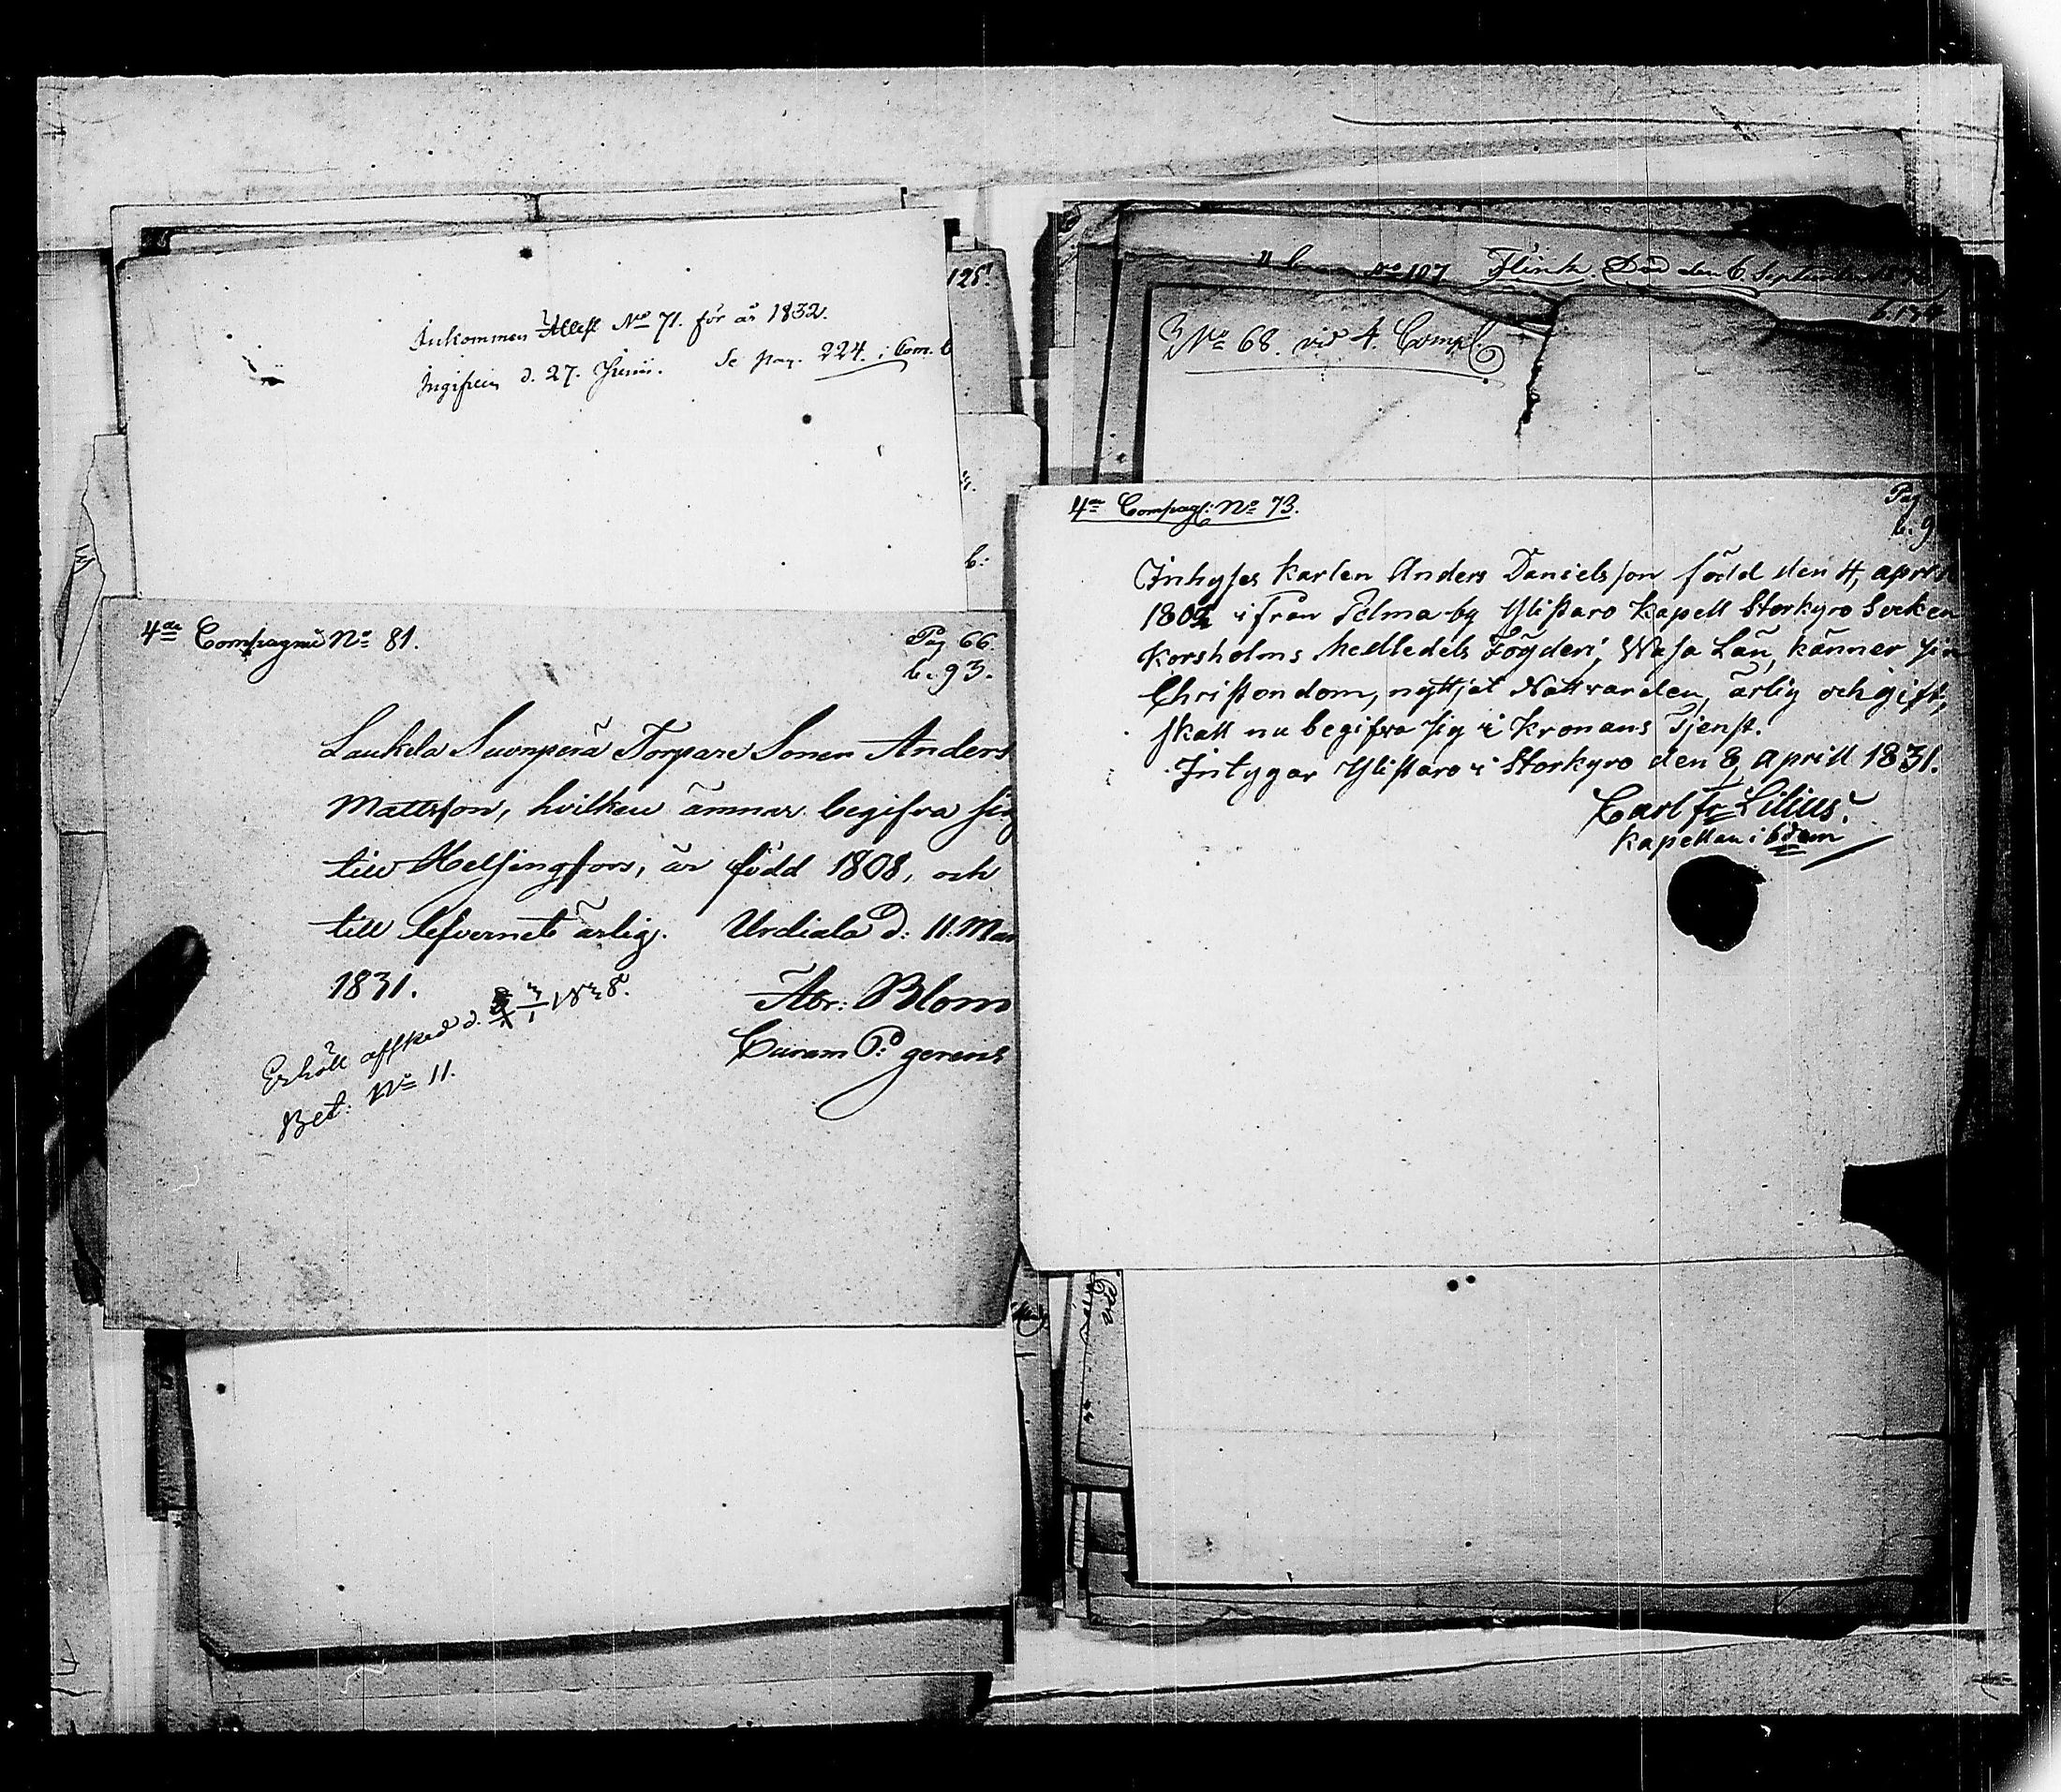 Inkommen Attest No 71. för år 1832.
Ingifven d. 27. Junii. Se pag. 224. i Com. b
125.
b:
4de Compagnie No 81.
Pag 66
b. 93.
Laukela Suonperä Torpare Sonen Anders
Mattsson, hvilken ämnar begifva sig
till Helsingfors, är född 1808, och
till lefvernet ärlig. Urdiala d: 11. Mar
1831.
Abr: Blom
Curam P: gerens
Erhöll afsked d. 3/1 1838.
Bet: No 11.
No 107 Flink. Död den 6 September
No 68. vid 4. Comp.
4de Compag: No 73.
Pag
b. 9
Inhyses karlen Anders Danielsson född den 4, april
1802 ifrån Pelma by Ylistaro Kapell Storkyro Socken
Korsholms Medledels Fögderi, Wasa Län, känner sin
Christendom, nyttjat Nattvarden, ärlig och gift,
skall nu begifva sig i Kronans Tjenst.
Intygar Ylistaro i Storkyro den 8 April 1831.
Carl Fr Lilius.
Kapellan i bdem